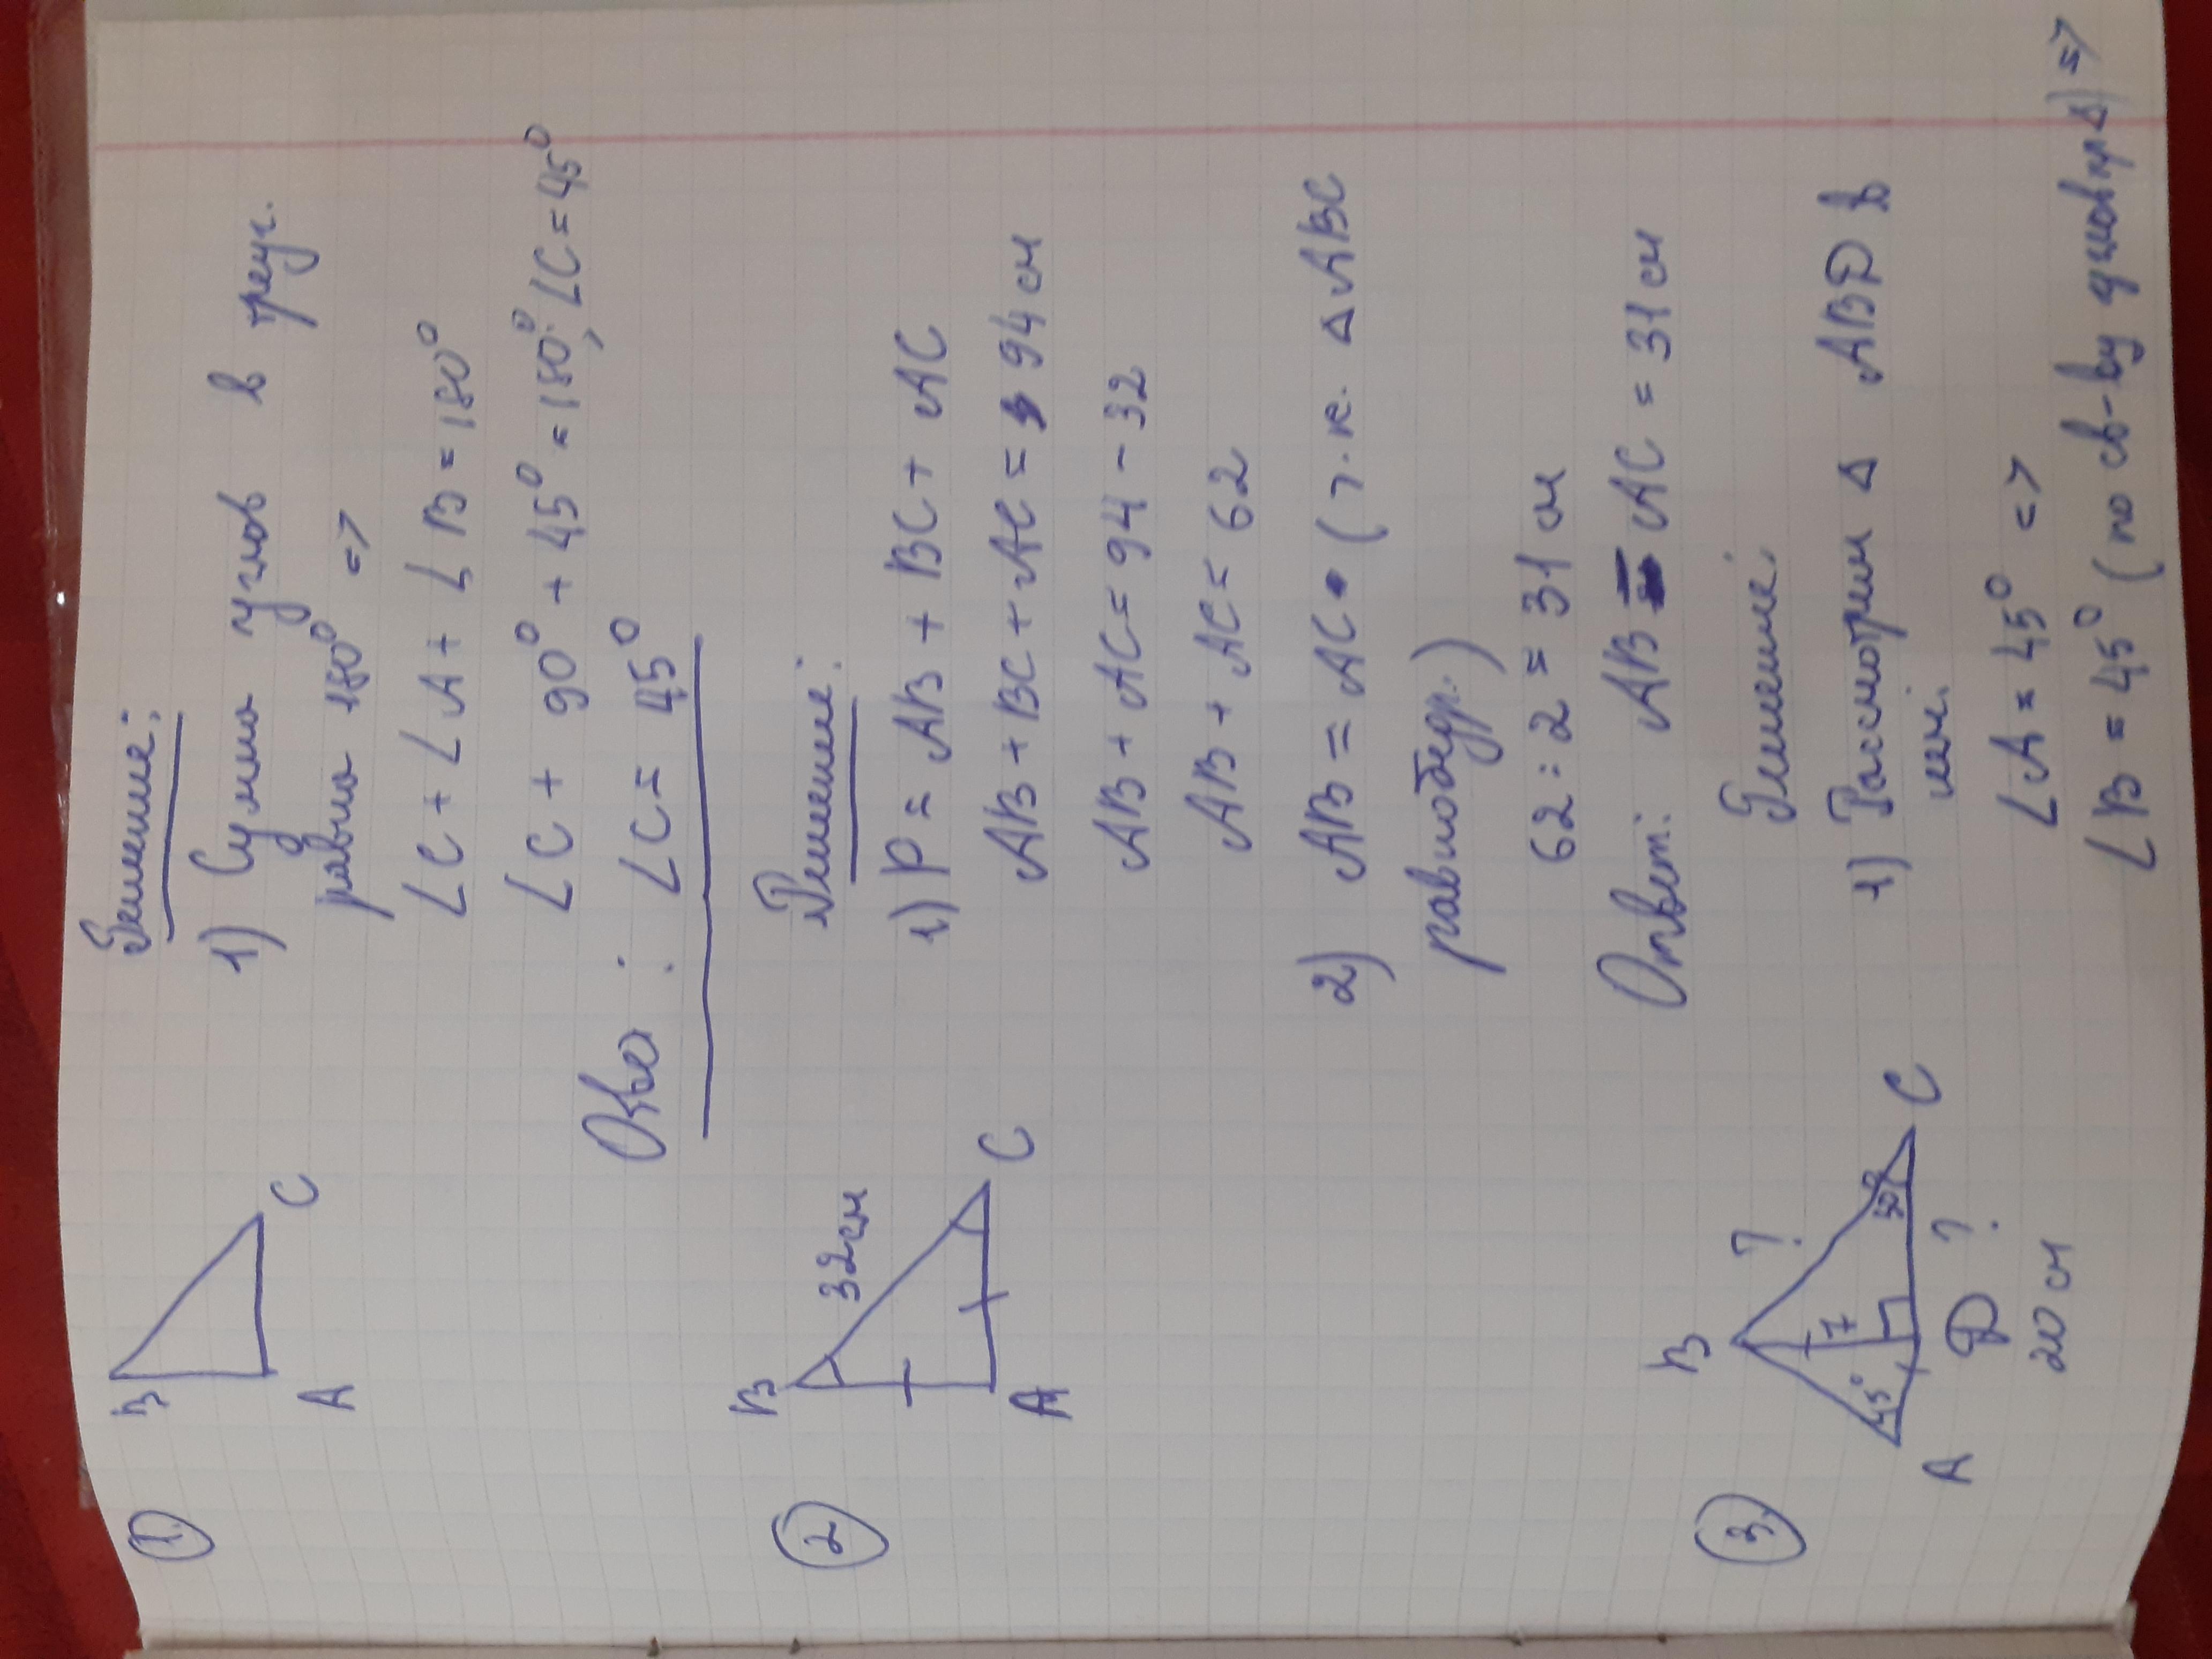 1.
B
A
C
Решение:
1) Сумма углов в треуг.
равна 180° =>
∠C + ∠A + ∠B = 180°
∠C + 90° + 45° = 180°; ∠C = 45°
Ответ: ∠C = 45°
2
B
32 см
A
C
Решение:
1) P = AB + BC + AC
AB + BC + AC = 94 см
AB + AC = 94 - 32
AB + AC = 62
2) AB = AC (т.к. △ABC
равнобедр.)
62 : 2 = 31 см
Ответ: AB = AC = 31 см
3
B
?
45°
A
D
?
C
20 см
Решение:
1) Рассмотрим △ ABD в
нём.
∠A = 45° =>
∠B = 45° (по св-ву углов пр△) =>